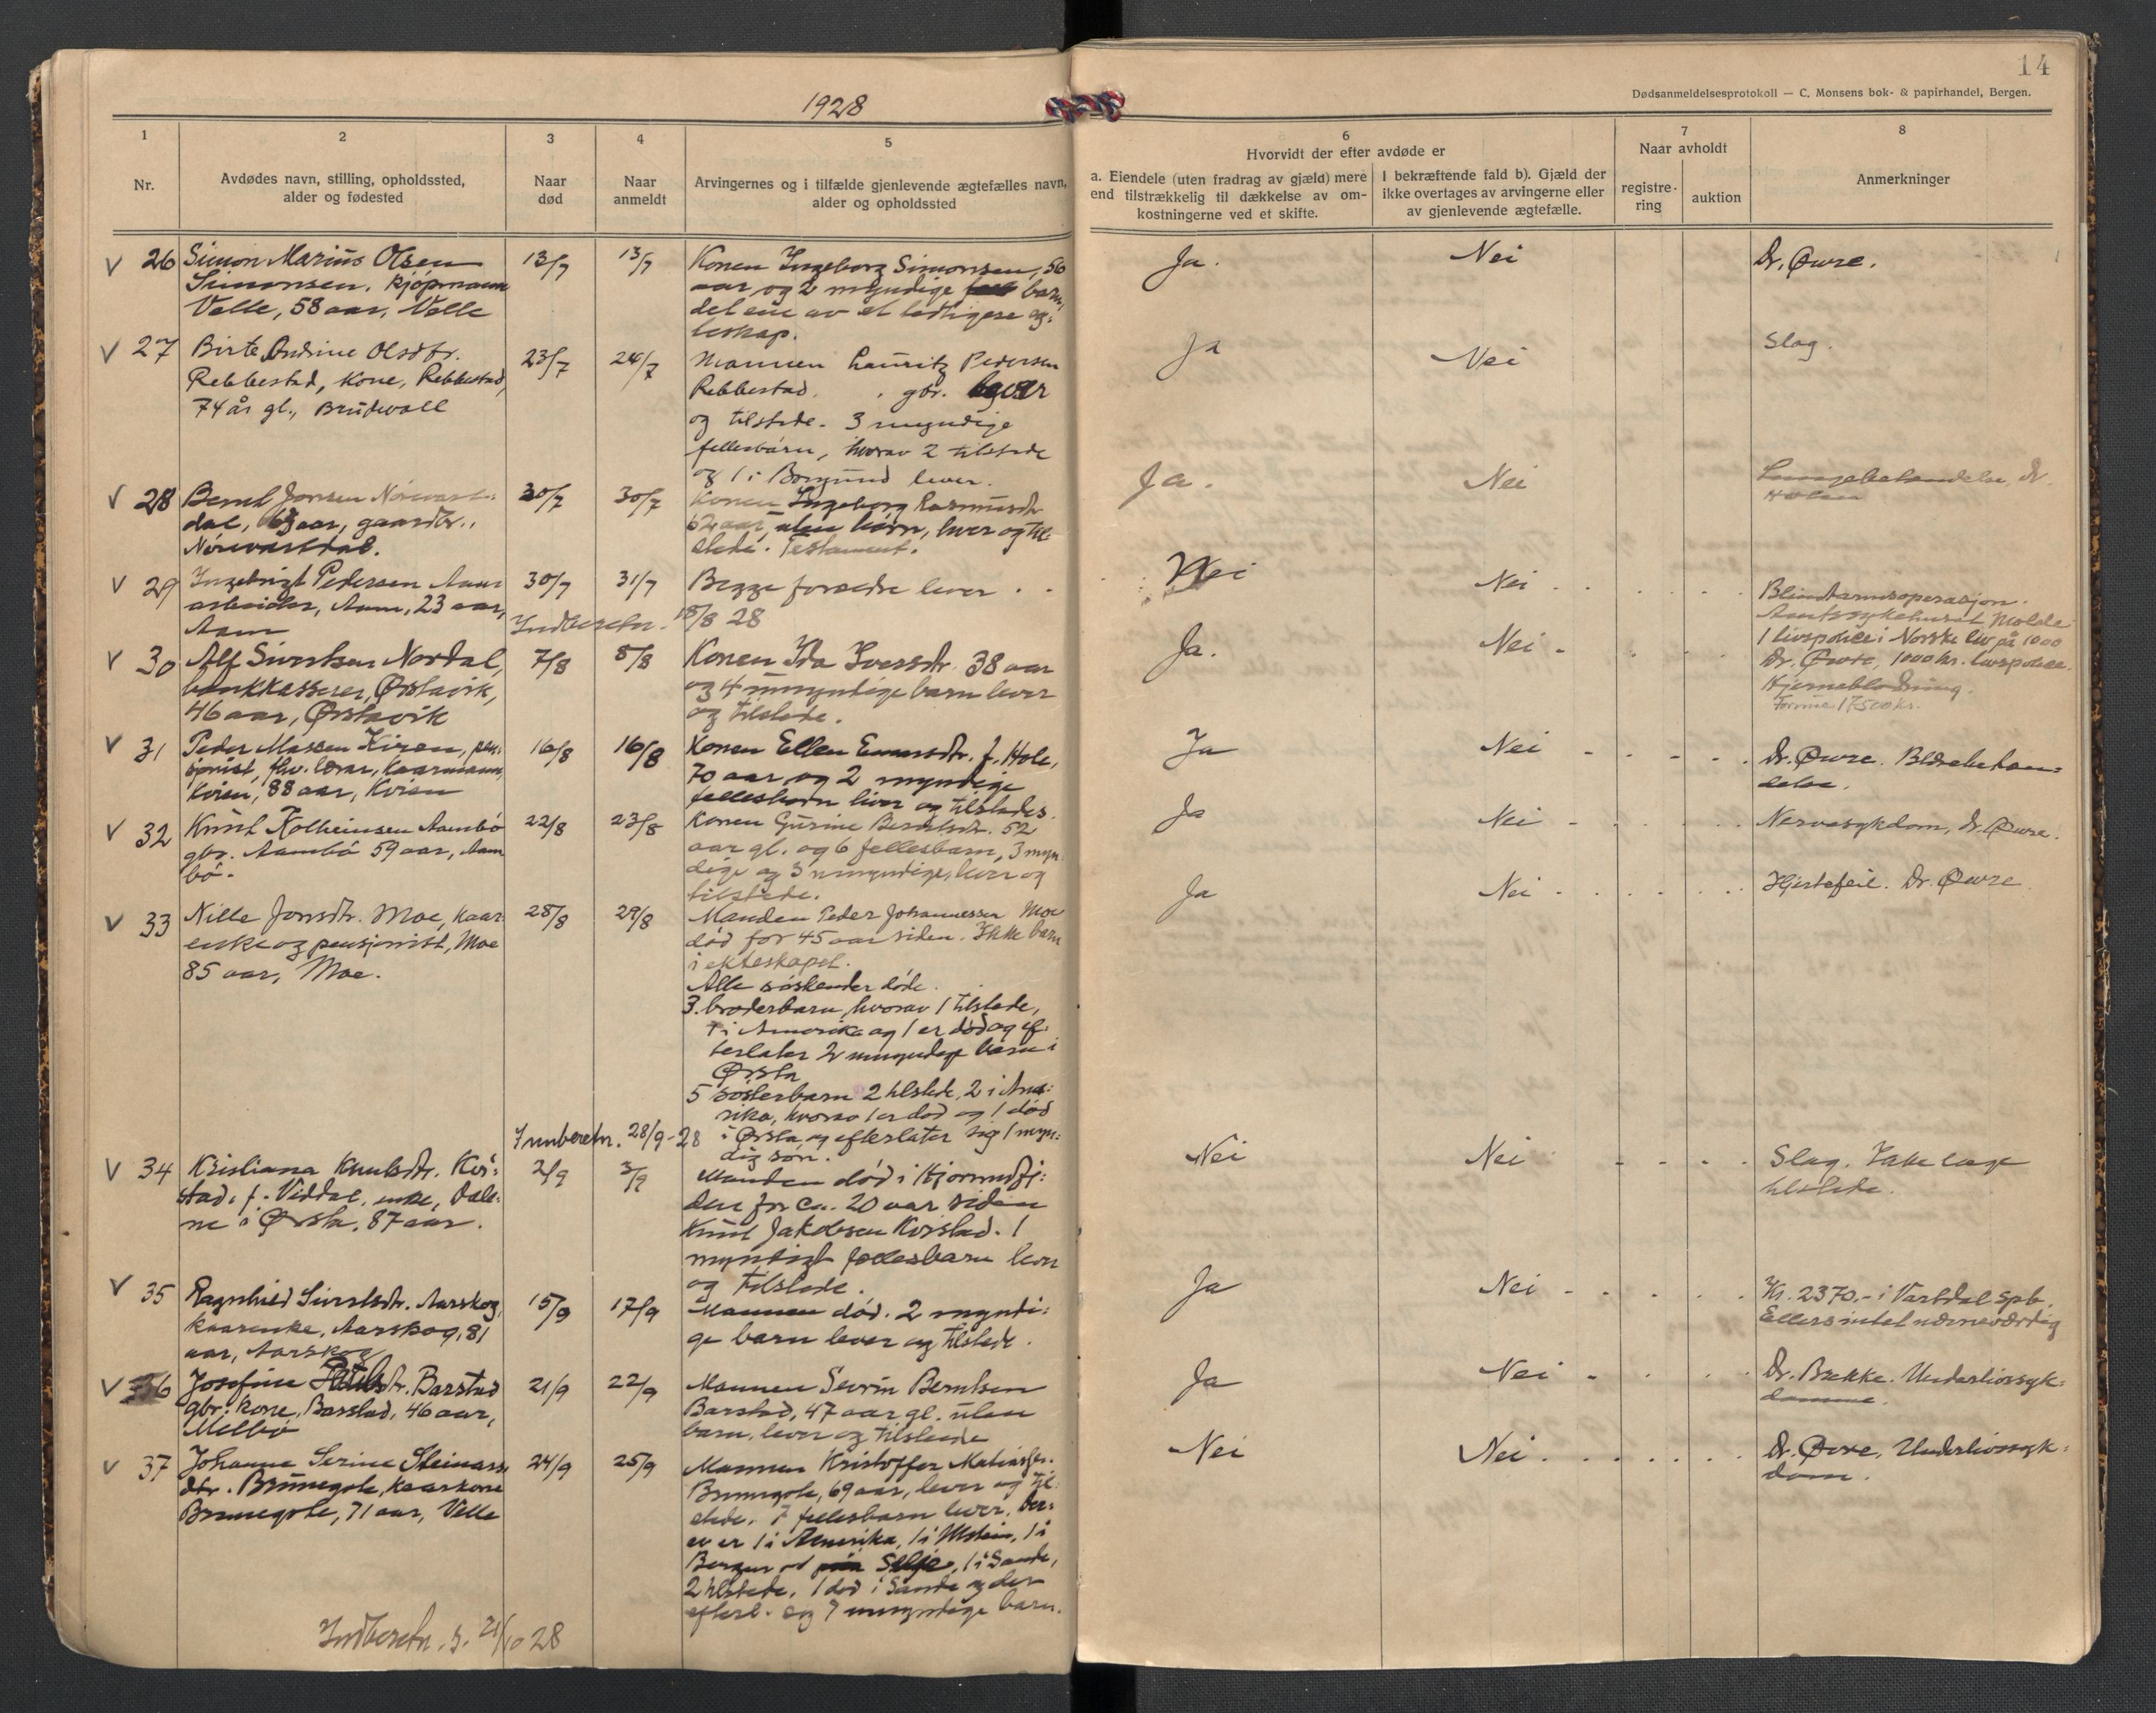 14
Dødsanmeldelsesprotokoll — C. Monsens bok- & papirhandel, Bergen.
1928
1
2
3
4
5
6
7
8
Nr.
Avdødes navn, stilling, opholdssted,
alder og fødested
Naar
død
Naar
anmeldt
Arvingernes og i tilfælde gjenlevende ægtefælles navn,
alder og opholdssted
Hvorvidt der efter avdøde er
a. Eiendele (uten fradrag av gjæld) mere
end tilstrækkelig til dækkelse av om-
kostningerne ved et skifte.
I bekræftende fald b). Gjæld der
ikke overtages av arvingerne eller
av gjenlevende ægtefælle.
Naar avholdt
registre-
ring
auktion
Anmerkninger
V 26 Simon Marius Olsen
Simonsen, kjøpmann
Velle, 58 aar, Velle
13/7
13/7
Konen Ingeborg Simonsen, 56
aar og 2 myndige barn,
det ene av et tidligere eg-
teskap.
Ja.
Nei
Dr. Øwre.
V 27 Birte Andrine Olsdtr.
Rebbestad, kone, Rebbestad,
74 år gl., Brudevoll
23/7
24/7
Mannen Lauritz Pedersen
Rebbestad, gbr. lever
og tilstede. 3 myndige
fellesbarn, hvorav 2 tilstede
og 1 i Borgund lever.
Ja
Nei
Slag.
V 28 Bernt Jonsen Nórevart-
dal, aar, gaardbr.,
Nórevartdal.
30/7
30/7
Konen Ingeborg Rasmusdtr
62 aar, uten barn, lever og til-
stede. Testament.
Ja.
Nei
V 29 Ingebrigt Pedersen Aam
arbeider, Aam, 23 aar,
Aam
30/7
31/7
Begge foreldre lever
Nei
Nei
Blindtarmsoperasjon.
Amtssykehuset Molde
1 livspolice i Norske liv på 1000
Indberetn. /8 28
V 30 Alf Sivertsen Nordal,
bankkasserer, Ørstavik,
46 aar, Ørstavik
7/8
8/8
Konen Ida Iversdtr. 38 aar
og 4 umyndige barn lever
og tilstede.
Ja.
Nei
Dr. Øwre, 1000 kr. livspolice.
Hjerneblødning.
Formue 17500 kr.
V 31 Peder Massen Kiren, pen-
sjonist, fhv. lærer, kaarmann,
Kvien, 88 aar, Kvien
16/8
16/8
Konen Ellen Einarsdtr. f. Hole,
70 aar og 2 myndige
fellesbarn lever og tilstedes.
Ja
Nei
Dr. Øwre. Blærebeten-
delse.
V 32 Knut Kolbeinsen Aambó
gbr. Aambó 59 aar, Aam
bó.
22/8
23/8
Konen Gurine Berdtsdtr. 52
aar gl. og 6 fellesbarn, 3 myn-
dige og 3 umyndige, lever og
tilstede.
Ja
Nei
Nervesykdom, Dr. Øwre.
V 33 Nille Jonsdtr. Moe, kaar
enke og pensjonist, Moe
85 aar, Moe.
28/8
29/8
Manden Peder Johannessen Moe
død for 45 aar siden. Ikke barn
i ekteskapet.
Alle sóskender døde.
3 broderbarn, hvorav 1 tilstede,
1 i Amerika og 1 er død og ef-
terlater 2 umyndige barn i
Ørsta
5 sösterbarn 2 tilstede, 2 i Ame-
rika, hvorav 1 er død og 1 død
i Ørsta og efterlater sig 1 myn-
dig són.
Ja
Nei
Hjertefeil. Dr. Øwre
Innberetn. 28/9-28
V 34 Kristiane Knutsdtr. Kvi-
stad, f. Viddal, enke, Dale-
ne i Ørsta, 87 aar.
2/9
3/9
Manden død i Hjorundfj-
den for ca. 20 aar siden
Knut Jakobsen Kvistad. 1
myndigt fellesbarn lever
og tilstede.
Nei
Nei
Slag. Ikke læge
tilstede.
V 35 Ragnhild Sivertsdtr. Aarskog,
kaarenke, Aarskog, 81
aar, Aarskog
15/9
17/9
Mannen død. 2 myndi-
ge barn lever og tilstede.
Ja
Nei
Kr. 2370.- i Vartdal spb.
Ellers intet nævneværdig
V 36 Josefine dtr. Barstad
gbr. kone, Barstad, 46 aar,
Melbó
21/9
22/9
Mannen Sevrin Berntsen
Barstad, 47 aar gl. uten
barn, lever og tilstede
Ja
Nei
Dr. Bakke. Underlivssyk-
domme.
V 37 Johanne Serine Steinars
dtr. Brunegote, kaarkone
Brunegote, 71 aar, Velle
24/9
25/9
Mannen Kristoffer Matiasses.
Brunegote, 69 aar, lever og til-
stede. 7 fellesbarn lever. Der-
av er 1 i Amerika, 1 i Ulstein, 1 i
Bergen Selje, 1 i Sande,
2 tilstede. 1 død i Sande og der
efterl. sig 7 umyndige barn.
Nei
Nei
Dr. Øvre, Underlivssyk-
dom.
Indberetn. s. 21/10 28